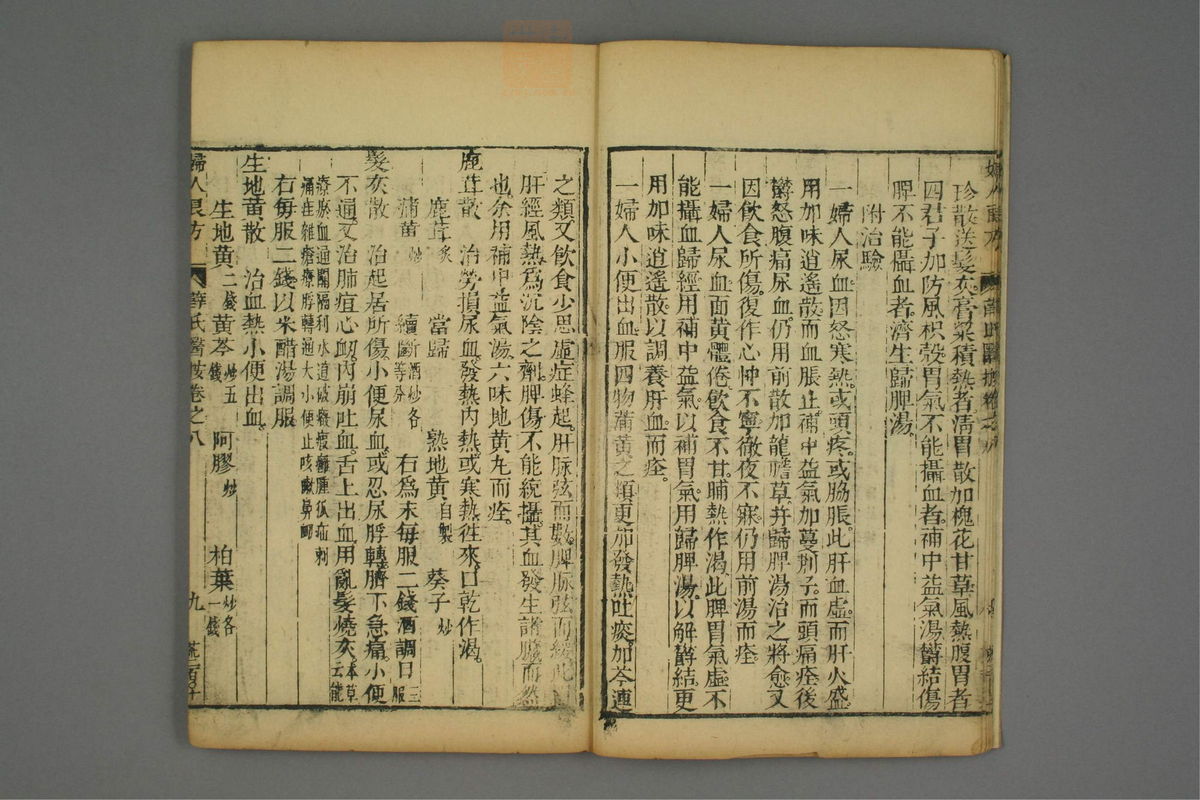 婦人良方
珍散送髮灰膏粱積熱者清胃散加槐花甘草風熱腹胃者
四君子加防風枳殼胃氣不能攝血者補中益氣湯欝結傷
脾不能攝血者濟生歸脾湯
附治驗
一婦人尿血因怒寒熱或頭疼或脇脹此肝血虛而肝火盛
用加味逍遙散而血脹止補中益氣加蔓荆子而頭痛痊後
欝怒腹痛尿血仍用前散加龍膽草并歸脾湯治之將愈又
因飲食所傷復作心忡不寧徹夜不寐仍用前湯而痊
一婦人尿血面黄體倦飲食不甘晡熱作渴此脾胃氣虛不
能攝血歸經用補中益氣以補胃氣用歸脾湯以解欝結更
用加味逍遙散以調養肝血而痊
一婦人小便出血服四物蒲黄之類更加發熱吐痰加芩連
之類又飲食少思虛症蜂起肝脉弦而數脾脉弦而緩此
肝經風熱爲沉陰之劑脾傷不能統攝其血發生諸臟而然
也余用補中益氣湯六味地黄丸而痊
鹿茸散 治勞損尿血發熱内熱或寒熱徃來口乾作渴
鹿茸炙 當歸 熟地黄自製 葵子炒
蒲黄炒 續斷酒炒各等分 右爲末每服二錢酒調日三服
髮灰散 治起居所傷小便尿血或忍尿脬轉臍下急痛小便
不通又治肺疽心衂内崩吐血舌上出血用亂髮燒灰本草云能
療瘀血通關隔利水道破癥瘕癰腫狐疝刺
痛在雜瘡療脬轉通大小便止咳嗽鼻衂
右每服二錢以米醋湯調服
生地黄散 治血熱小便出血
生地黄二錢 黄芩炒五錢 阿膠炒 柏葉炒各一錢
婦人良方 薛氏醫按卷之八 九